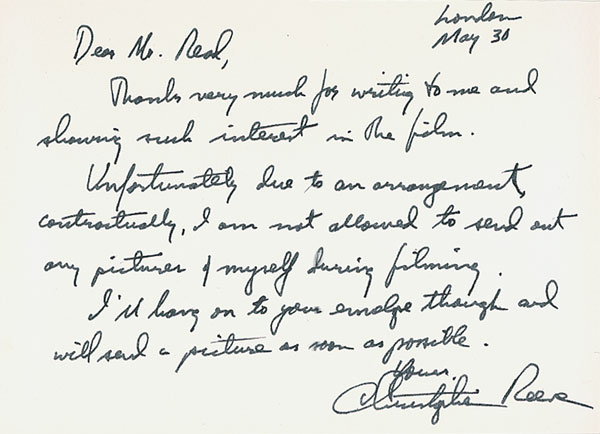 London
May 30
Dear Mr. Read,
Thanks very much for writing to me and
showing such interest in the film.
Unfortunately due to an arrangement,
contractually, I am not allowed to send out
any pictures of myself during filming.
I'll hang on to your envelope though and
will send a picture as soon as possible.
Yours,
Christopher Reeve